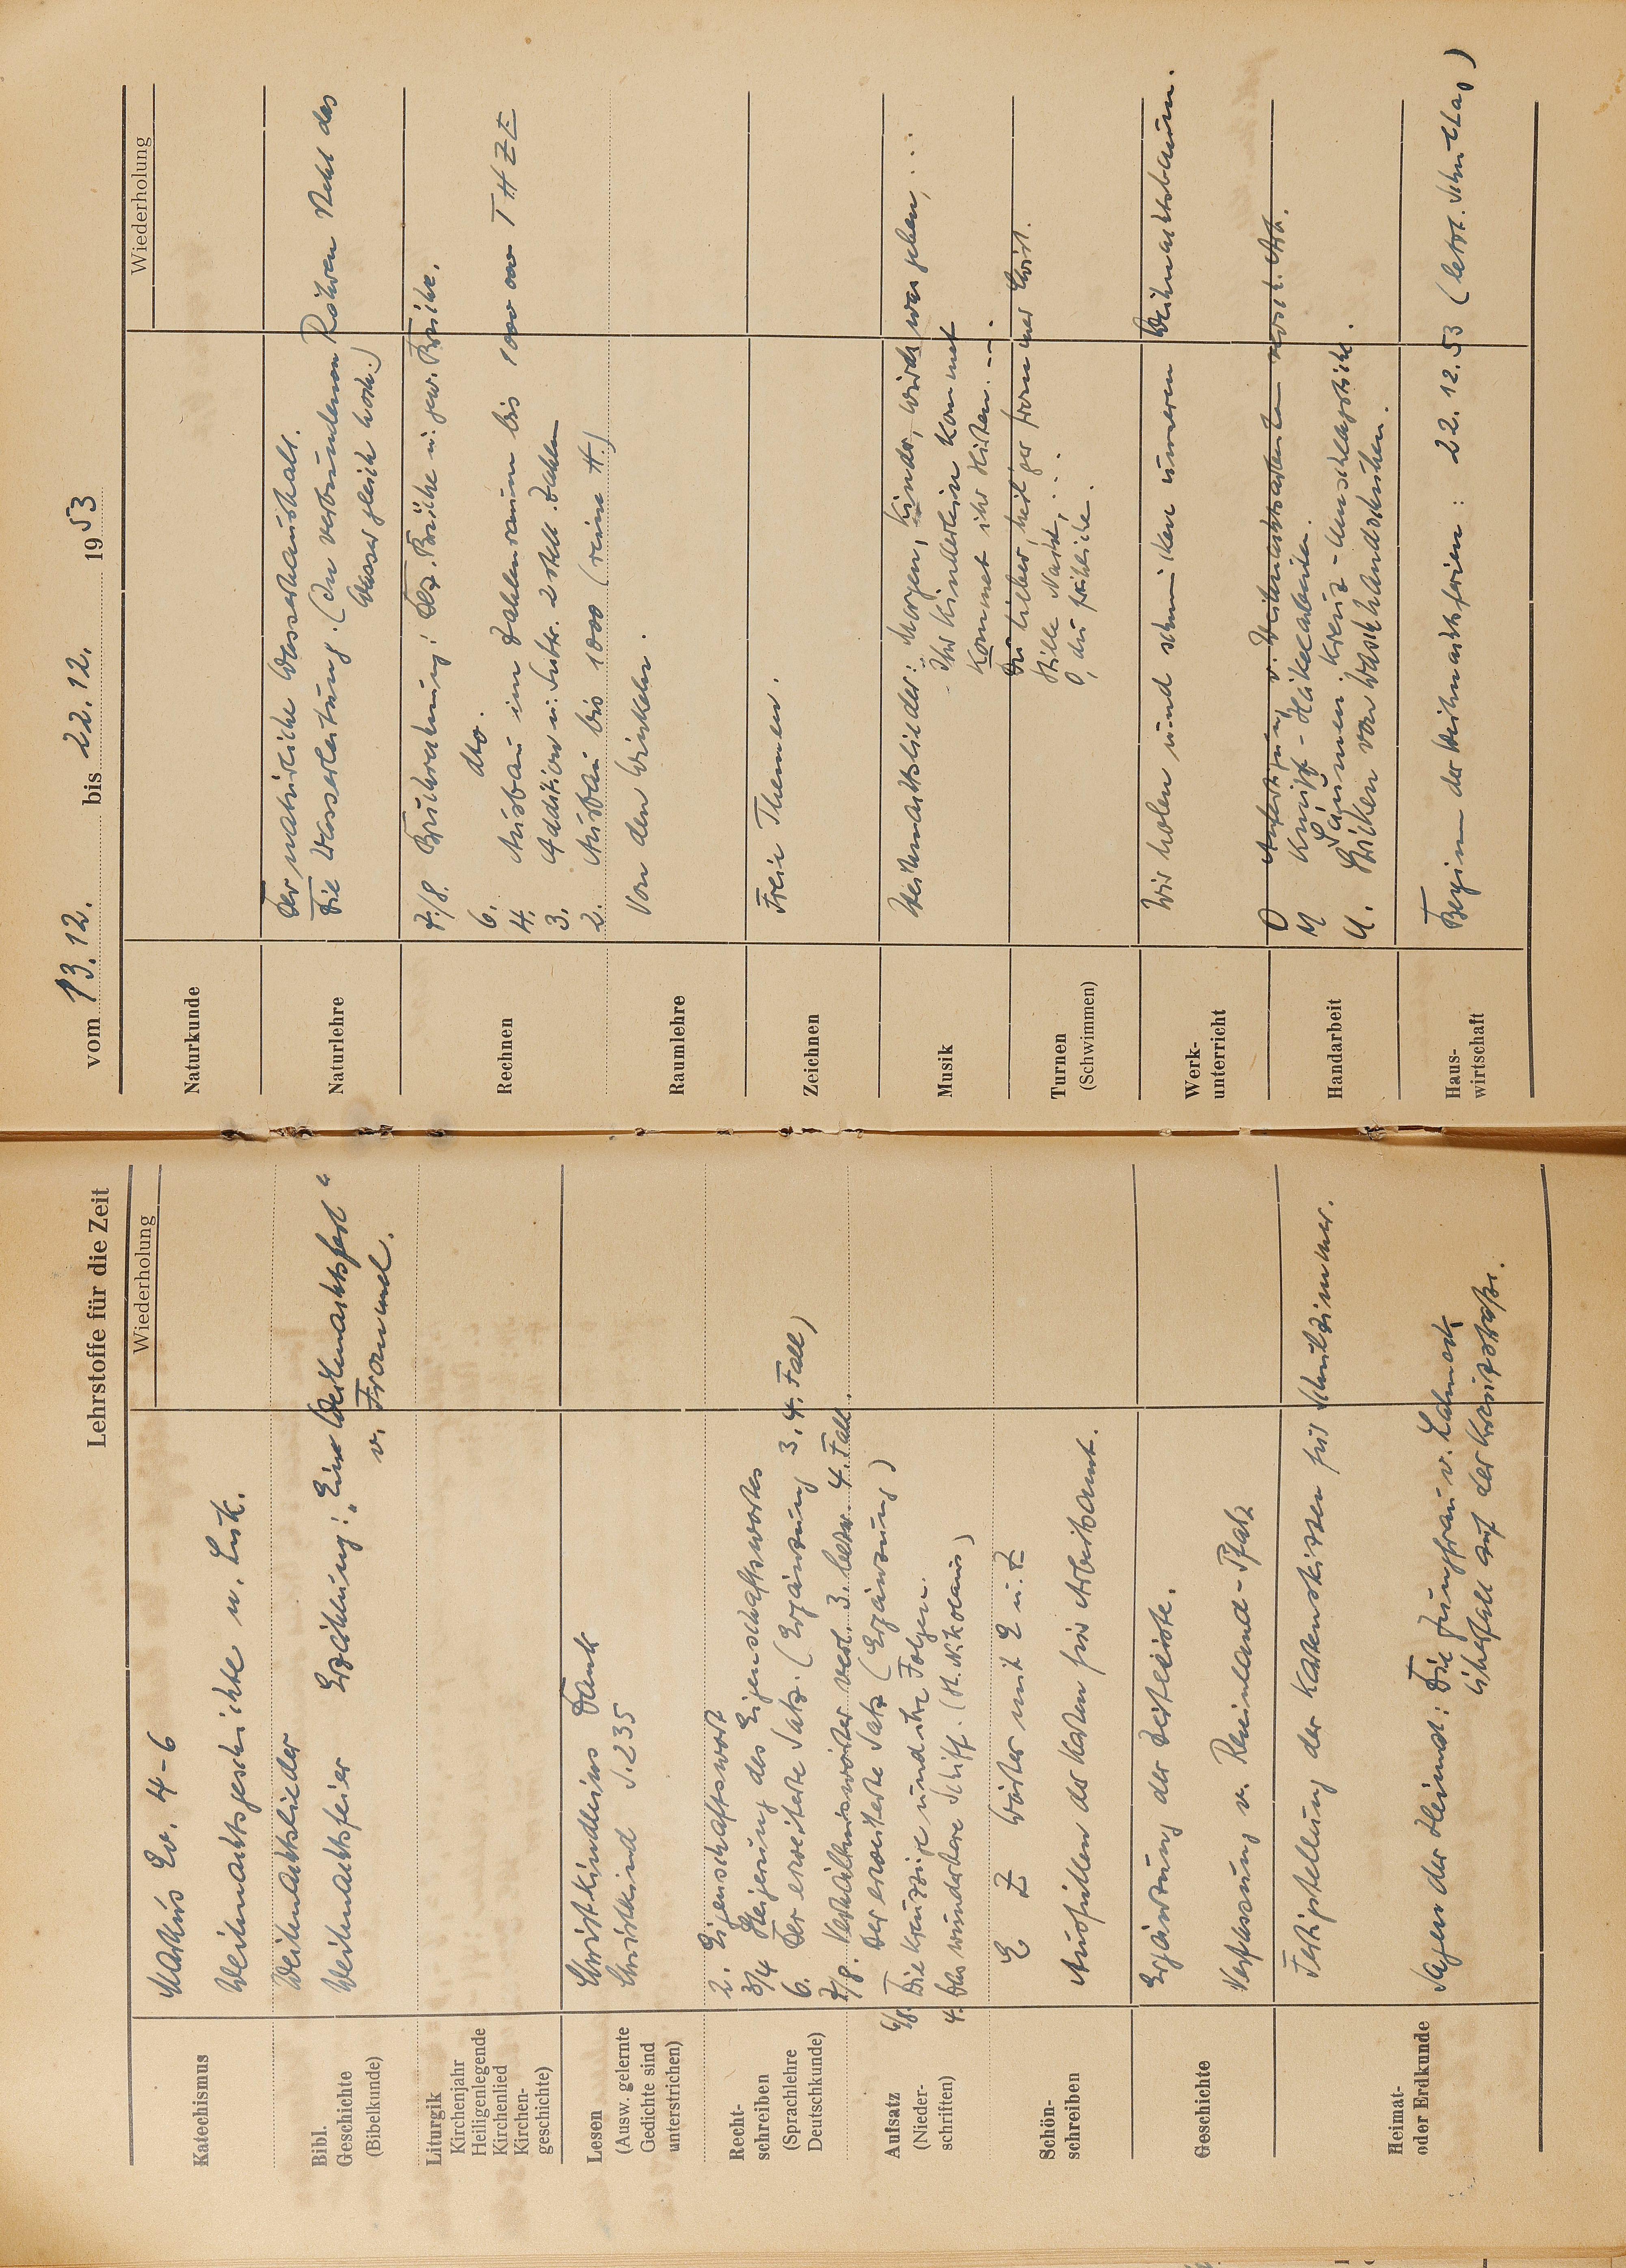 Lehrstoffe für die Zeit
Wiederholung
Katechismus
Markus Ev. 4-6
Weihnachtsgeschichte n. Luk.
Bibl.
Geschichte
(Bibelkunde)
Weihnachtslieder
Weihnachtsfeier Erzählung: „Eine Weihnachtsfest"
v. Frommel.
Liturgik
Kirchenjahr
Heiligenlegende
Kirchenlied
Kirchen-
geschichte)
Lesen
(Ausw. gelernte
Gedichte sind
unterstrichen)
Christkindleins Dank
Christkind S. 235
Recht-
schreiben
(Sprachlehre
Deutschkunde)
2. Eigenschaftswort
3/4 Steigerung des Eigenschaftswortes
6. Der erweiterte Satz. (Ergänzung 3. 4. Fall)
7/8. Verhältniswörter verl. 3. bezw. 4. Fall.
Der erweiterte Satz (Ergänzung)
Aufsatz
(Nieder-
schriften)
6/8. Die Kreuzzüge und ihre Folgen.
4. Das wunderbare Schiff. (St. Nikolaus)
Schön-
schreiben
E Z Wörter mit E u. Z
Ausfüllen der Karten für Arbeitsamt.
Geschichte
Ergänzung der Zeitleiste.
Verfassung v. Rheinland-Pfalz
Heimat-
oder Erdkunde
Fertigstellung der Kartenskizzen für Schulzimmer.
Sagen der Heimat: Die Jungfrau v.
Überfall auf der Kreuzstraße.
vom 13. 12. bis 22. 12. 1953
Wiederholung
Naturkunde
Naturlehre
Der natürliche Wasserhaushalt.
Die Wasserleitung. (In verbundenen Röhren steht das
Wasser gleich hoch.)
Rechnen
7./8. Bruchrechnung: Dez. Brüche u. gew. Brüche.
6. dto.
4. Ausbau im Zahlenraum bis 1000 000 T H Z E
3. Addition u. Subtr. 2 stell. Zahlen
2. Ausbau bis 1000 (reine H.)
Raumlehre
Von den Winkeln.
Zeichnen
Freie Themen.
Musik
Weihnachtslieder: Morgen, Kinder, wirds was geben, ...
Ihr Kinderlein kommet
Kommet ihr Hirten. ---
Du lieber, heil'ger frommer Christ.
Stille Nacht, ...
O, du fröhliche.
Turnen
(Schwimmen)
Werk-
unterricht
Wir holen und schmücken unseren Weihnachtsbaum.
Handarbeit
O Anfertigung v. Weihnachtsarbeiten versch. Art.
M Knüpf- Häkelarbeiten.
Säumen, Kreuz- Umschlagstiche.
U. Stricken von Waschhandschuhen.
Haus-
wirtschaft
Beginn der Weihnachtsferien: 22. 12. 53 (letzt. Schultag)